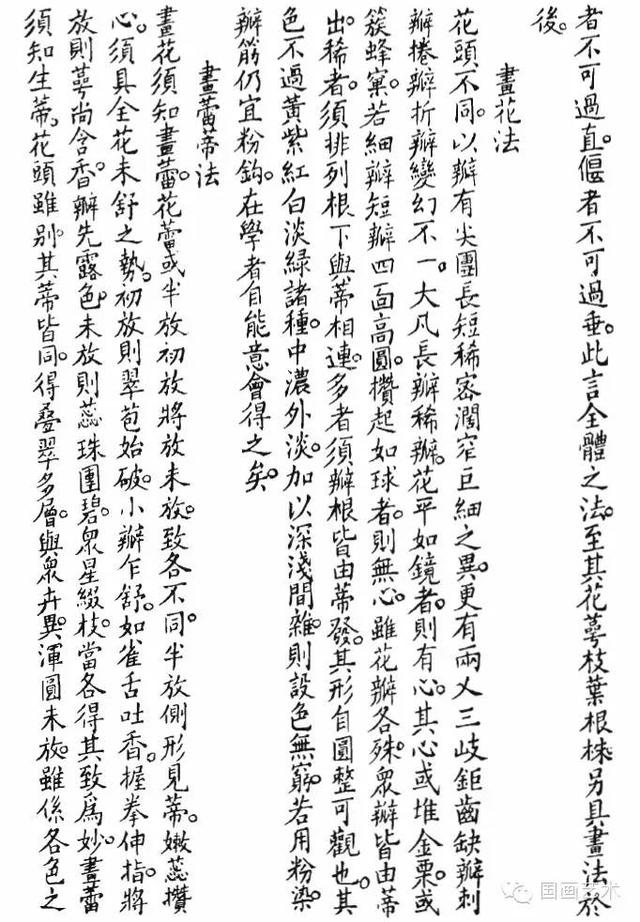 者不可過直。偃者不可過垂。此言全體之法。至其花萼枝葉根株。另具畫法於
後。
畫花法
花頭不同。以瓣有尖團長短稀密濶窄巨細之異。更有兩乂三岐鉅齒缺瓣刺
瓣捲瓣折瓣變幻不一。大凡長瓣稀瓣。花平如鏡者。則有心。其心或堆金粟。或
簇蜂窠。若細瓣短瓣四面高圓。攢起如球者。則無心。雖花瓣各殊。衆瓣皆由蒂
出。稀者。須排列根下與蒂相連。多者須瓣根皆由蒂發。其形自圓整可觀也。其
色不過黃紫紅白淡綠諸種。中濃外淡。加以深淺間雜。則設色無窮。若用粉染。
瓣筋仍宜粉鈎。在學者自能意會得之矣。
畫蕾蒂法
畫花須知畫蕾。花蕾或半放初放將放未放。致各不同。半放側形見蒂。嫩蕊攢
心。須具全花未舒之勢。初放則翠苞始破。小瓣乍舒。如雀舌吐香。握拳伸指。將
放則萼尚含香。瓣先露色。未放則蕊珠團碧。衆星綴枝。當各得其致爲妙。畫蕾
須知生蒂。花頭雖別。其蒂皆同。得叠翠多層。與衆卉異。渾圓未放。雖係各色之
国画艺术